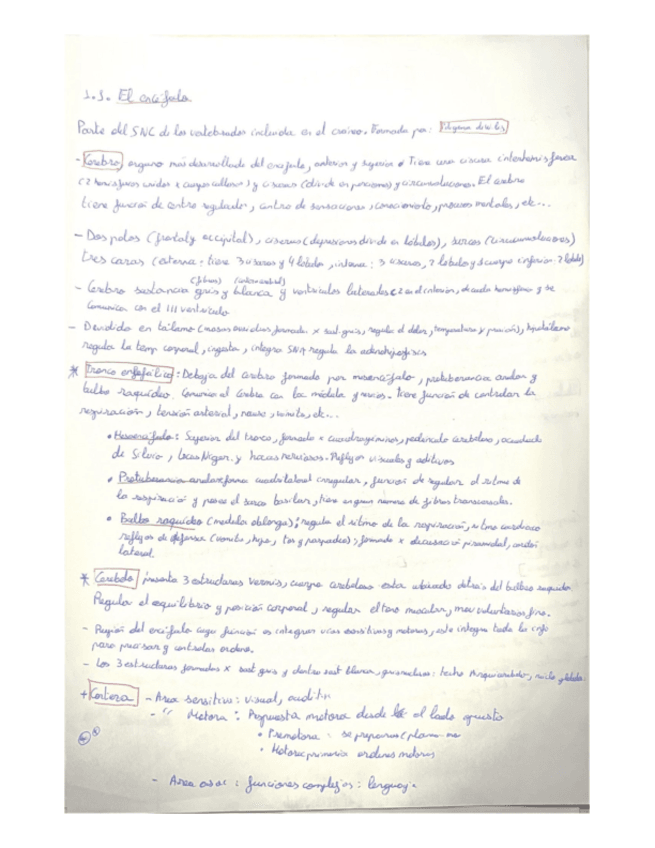 1.1. El encéfalo
Parte del SNC de los vertebrados incluida en el cráneo. Formada por:
- Cerebro, organo más desarrollado del encéfalo, anterior y superior. Tiene una cisura interhemisferica
(2 hemisferios unidos x cuerpo calloso) y cisuras (divide en porciones) y circunvoluciones. El cerebro
tiene función de centro regulador, centro de sensaciones, conocimiento, procesos mentales, etc...
- Dos polos (frontal y occipital), cisuras (depresiones divide en lóbulos), surcos (circunvoluciones)
tres caras (externa: tiene 3 cisuras y 4 lóbulos, interna: 3 cisuras, 2 lóbulos y cuerpo inferior: 2 lóbulos)
- Cerebro sustancia gris y blanca y ventriculos laterales (2 en el interior, de cada hemisferio y se
comunica con el III ventriculo
- Dividido en tálamo (masas ovoideas formada x sust. gris, regula el dolor, temperatura y presión), hipotálamo
regula la temp corporal, ingesta, integra SNA regula la adenohipofisis
* Tronco encefálico: Debajo del cerebro formado por mesencéfalo, protuberancia anular y
bulbo raquídeo. Comunica el cerebro con la médula y nervios. Tiene función de controlar la
respiración, tensión arterial, nauseas, vómito, etc...
• Mesencéfalo: Superior del tronco, formado x cuadrigéminos, pedúnculo cerebeloso, acueducto
de Silvio, locus Niger y nervios. Reflejos visuales y auditivos
• Protuberancia anular: forma cuadrilateral irregular, función de regular el ritmo de
la respiración y posee el surco basilar, tiene en gran numero de fibras transversales.
• Bulbo raquídeo (medula oblonga): regula el ritmo de la respiración, ritmo cardiaco
reflejos de defensa (vomito, hipo, tos y parpadeo); formado x decusación piramidal, cordón
lateral.
* Cerebelo presenta 3 estructuras vermis, cuerpo cerebeloso esta ubicado detrás del bulbo raquídeo
Regula el equilibrio y posición corporal, regular el tono muscular, mov voluntarios fino.
- Región del encéfalo cuya función es integrar vías sensitivas y motoras, este integra toda la info
para precisar y controlar ordenes.
- Las 3 estructuras formadas x sust gris y dentro sust blanca,
+ Corteza - Area sensitiva: visual, auditiva
- " Motora: Respuesta motora desde el lado opuesto
• Premotora: se preparan
• Motora primaria ordenes motoras
- Area asoc: funciones complejas: lenguaje